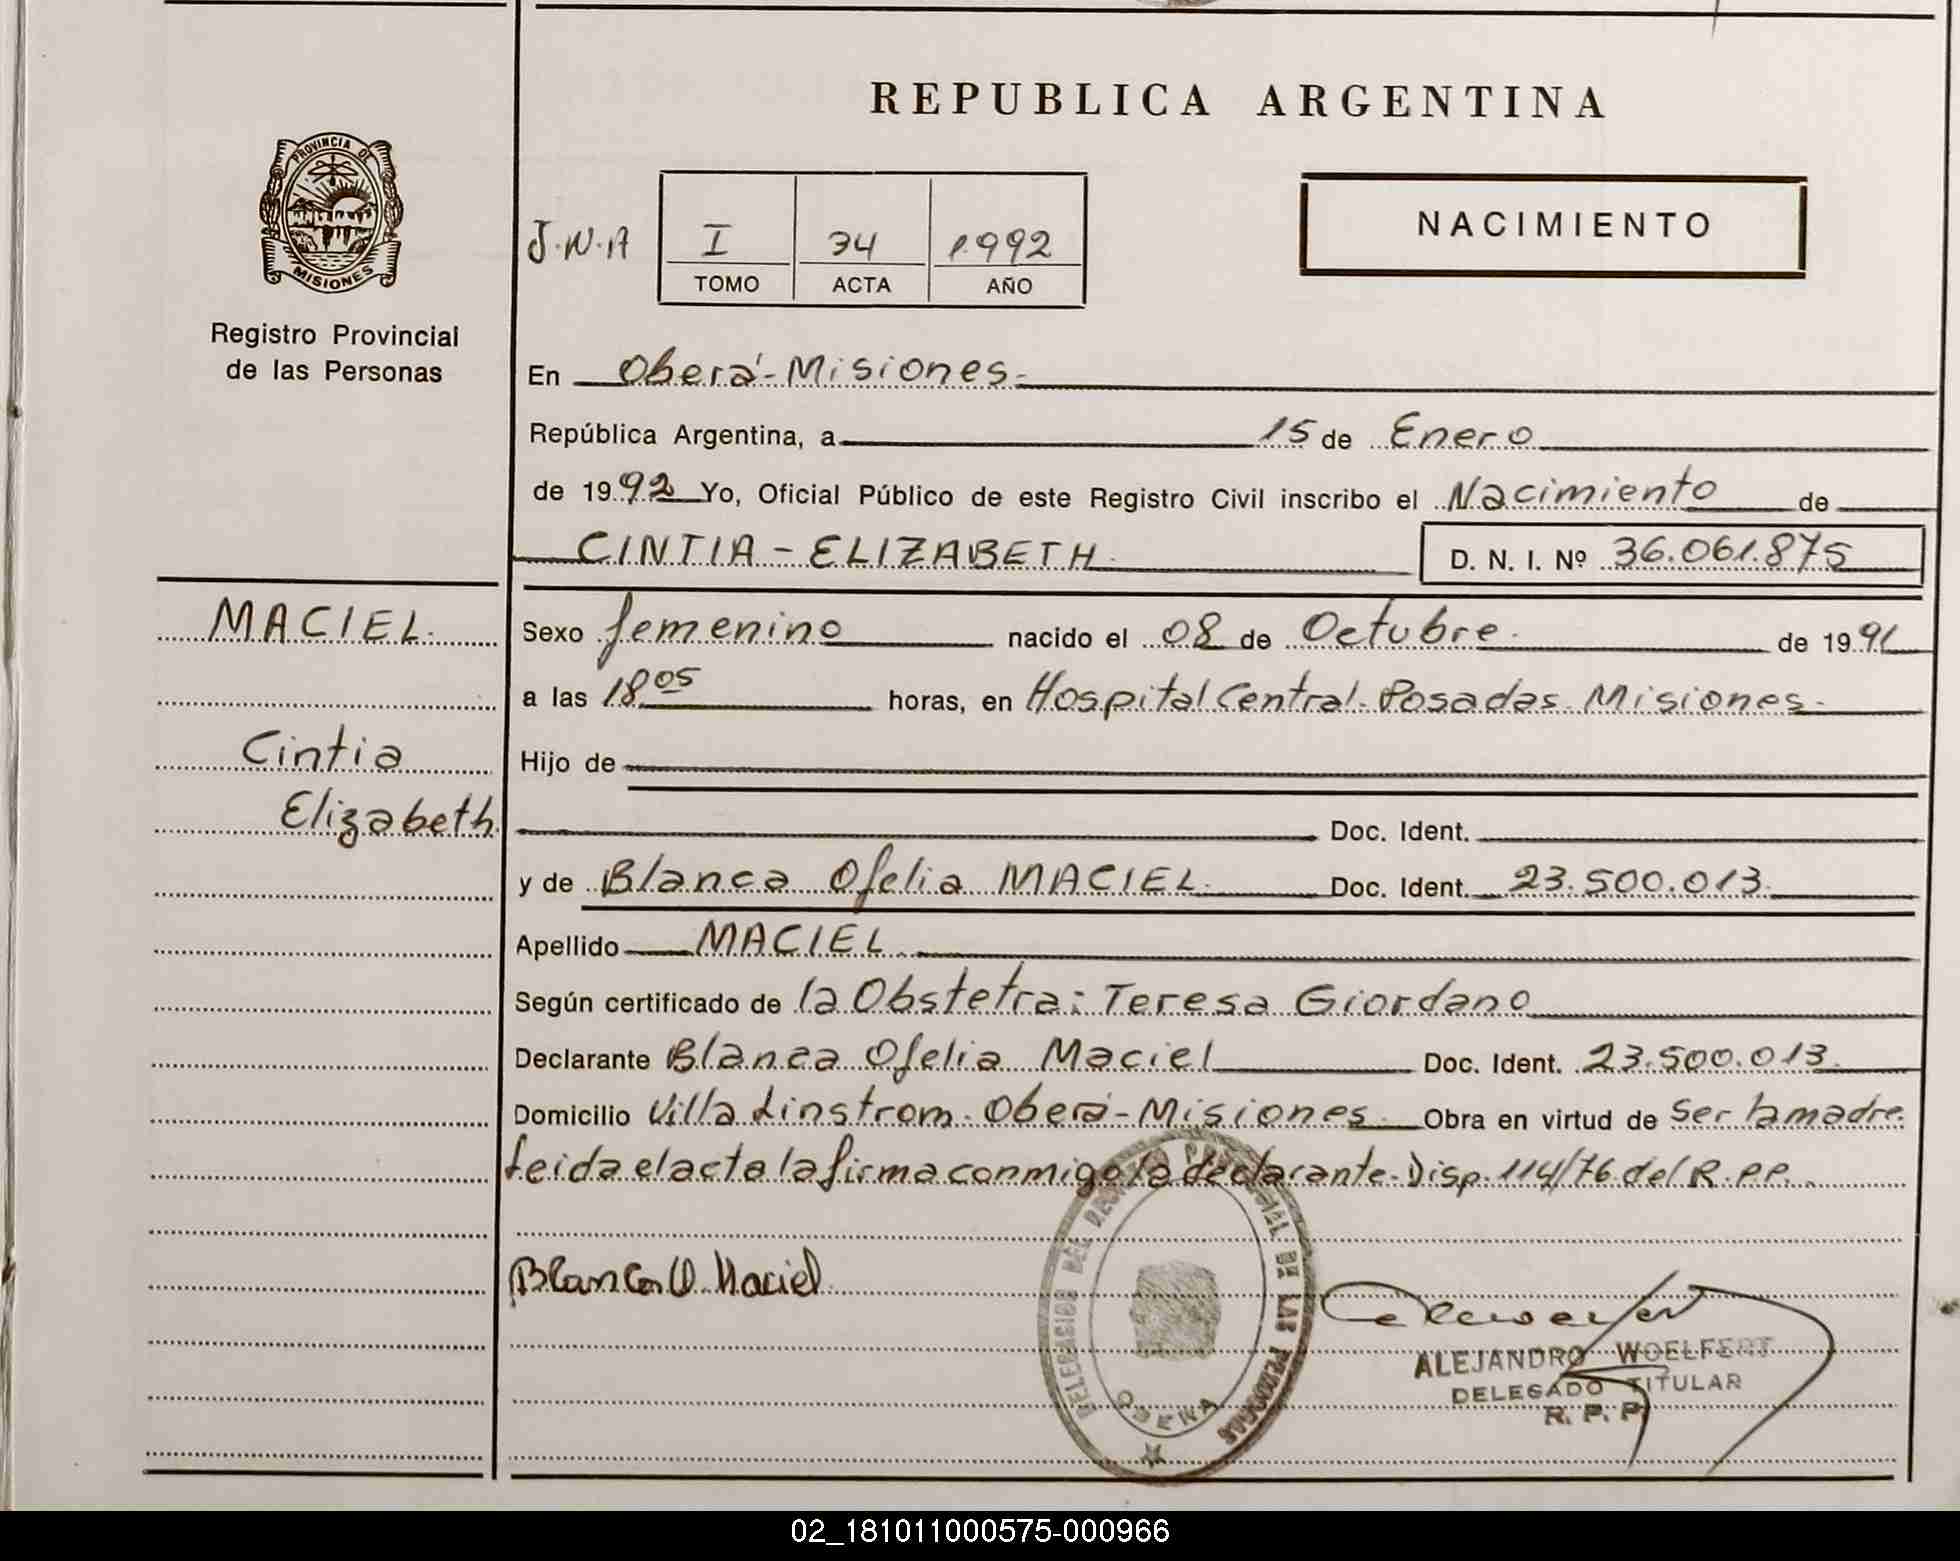 REPUBLICA ARGENTINA
PROVINCIA DE
MISIONES
Registro Provincial
de las Personas
J.N.A
I 34 1.992
TOMO ACTA AÑO
NACIMIENTO
En Oberá-Misiones-
República Argentina, a 15 de Enero
de 1992 Yo, Oficial Público de este Registro Civil inscribo el Nacimiento de
CINTIA-ELIZABETH. D. N. I. Nº 36.061.875
MACIEL.
Sexo femenino nacido el 08 de Octubre. de 1991
a las 18 05 horas, en Hospital Central-Posadas-Misiones-
Cintia
Hijo de
Elizabeth
Doc. Ident.
y de Blanca Ofelia MACIEL. Doc. Ident. 23.500.013.
Apellido MACIEL.
Según certificado de la Obstetra: Teresa Giordano
Declarante Blanca Ofelia Maciel Doc. Ident. 23.500.013.
Domicilio Villa Linstrom-Oberá-Misiones- Obra en virtud de Ser la madre.
Leida el acta la firma conmigo la declarante-Disp.114/76 del R.P.P.
Blanca O. Maciel
DELEGACION DEL REGISTRO PROVINCIAL DE LAS PERSONAS
OBERA
ALEJANDRO WOELFERT
DELEGADO TITULAR
R. P. P.
02_181011000575-000966